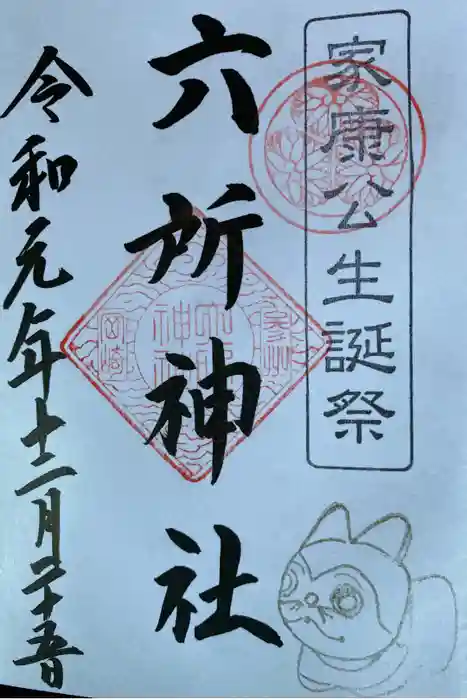 家康公生誕祭
六所神社
参州
六所神社
岡崎
令和元年十二月二十五日